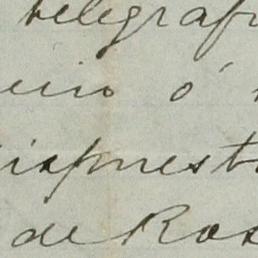 telegraf
eiro ó
ispuest
de Ros